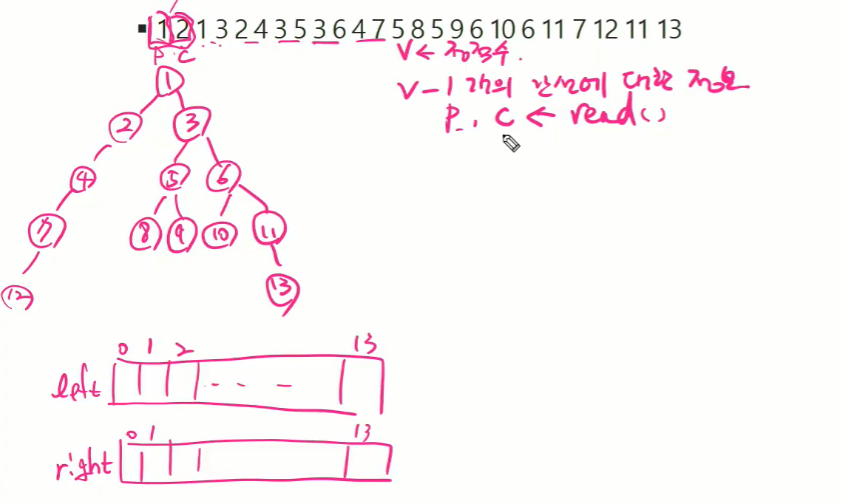 ▪ 1 2 1 3 2 4 3 5 3 6 4 7 5 8 5 9 6 10 6 11 7 12 11 13
P C
V ← 정점수.
V - 1 개의 간선에 대한 정보
P, C ← read()
1
2 3
4 5 6
7 8 9 10 11
12 13
0 1 2 13
left
0 1 13
right